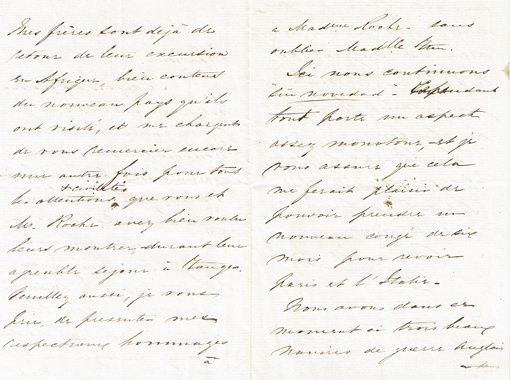 Mes frères sont déjà de
retour de leur excursion
en Afrique, bien contents
du nouveau pays qu'ils
ont visité, et me chargent
de vous remercier encore
une autre fois pour tous
les attentions & civilités que vous et
M. Roche avez bien voulu
leurs montrer, durant leur
agreable sejour à
Veuillez aussi, je vous
prie, de presenter mes
respectueux hommages
à
a Madme Roche - sans
oublier Madlle
Ici nous continuons
"sin novedad" - Cependant
tout porte un aspect
assez monotone - et je
vous assure que cela
me ferait plaisir de
pouvoir prendre un
nouveau congé de six
mois pour revoir
Paris et l'Italie -
Nous avons dans ce
moment ci trois beaux
navires de guerre Anglais